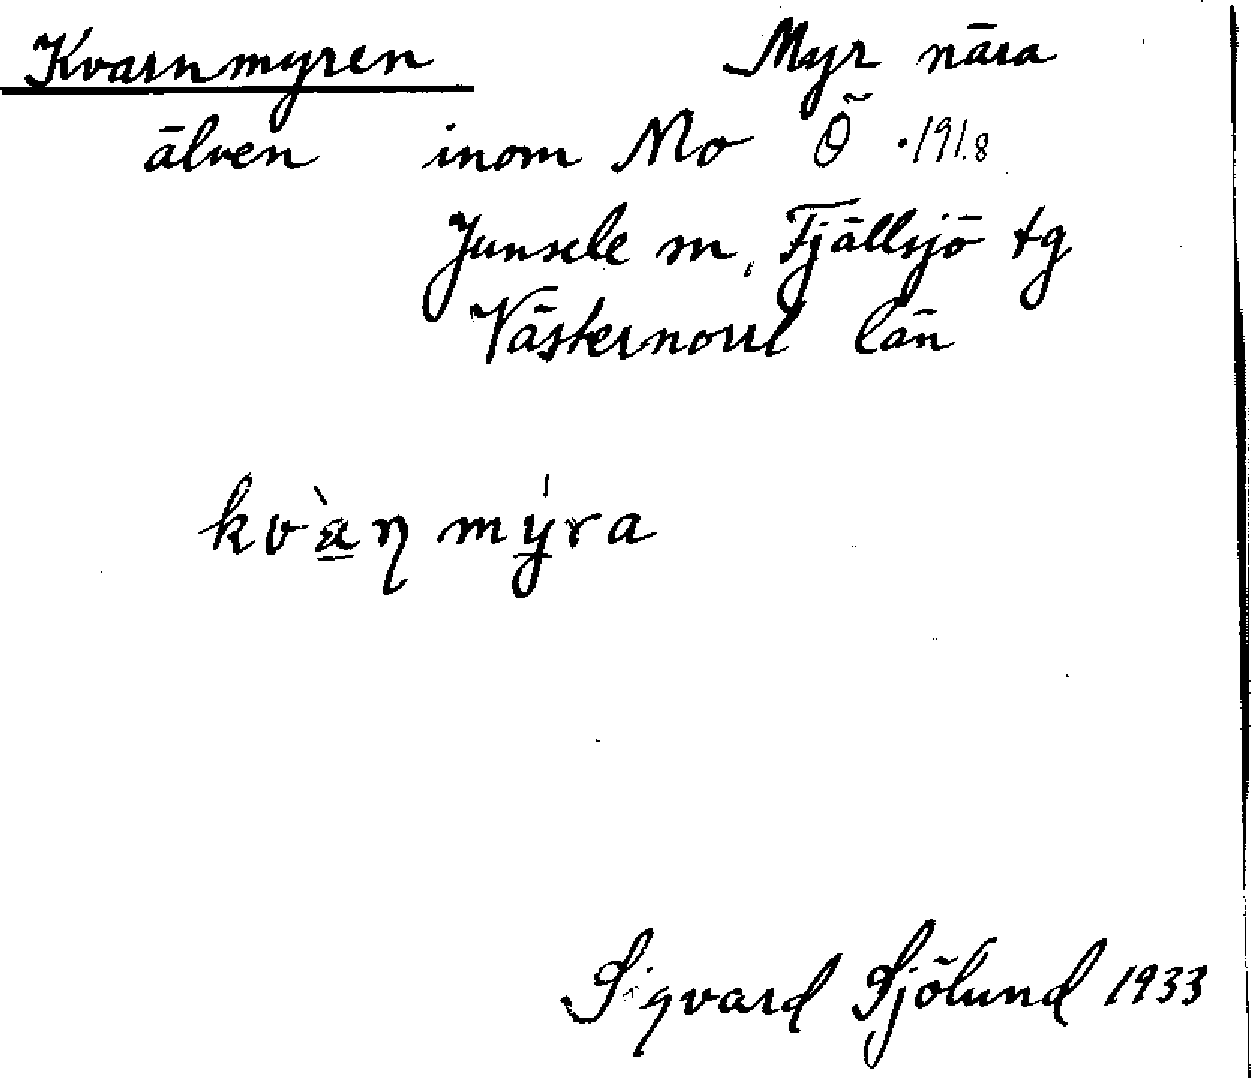 Kvarnmyren Myr nära
älven inom Mo Ö .191.8
Junsele sn, Fjällsjö tg
Västernorrl län
kvàŋmýra
Sigvard Sjölund 1933